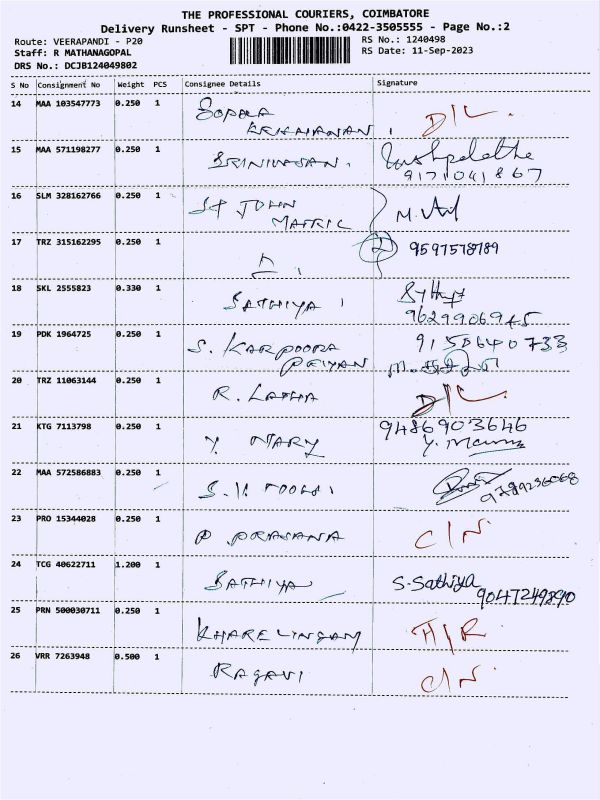 THE PROFESSIONAL COURIERS, COIMBATORE
Delivery Runsheet - SPT - Phone No.:0422-3505555 - Page No.:2
Route: VEERAPANDI - P20
Staff: R MATHANAGOPAL
DRS No.: DCJB124049802
RS No.: 1240498
RS Date: 11-Sep-2023
S No Consignment No Weight PCS Consignee Details Signature
14 MAA 103547773 0.250 1
D/L
15 MAA 571198277 0.250 1 SRINIVASAN.
9171041867
16 SLM 328162766 0.250 1 ST JOHN
MATRIC
17 TRZ 315162295 0.250 1 9597578789
18 SKL 2555823 0.330 1 SATHIYA
9629906945
19 PDK 1964725 0.250 1 S. KARPOORA
9155640733
20 TRZ 11063144 0.250 1 R. LATHA D/L
21 KTG 7113798 0.250 1 Y. MARY 9486903646
22 MAA 572586883 0.250 1
23 PRO 15344028 0.250 1 P. PRASANA C/N
24 TCG 40622711 1.200 1 SATHIYA S.Sathiya
25 PRN 500030711 0.250 1 KHARELINGAM H/R
26 VRR 7263948 0.500 1 RAGAVI C/N